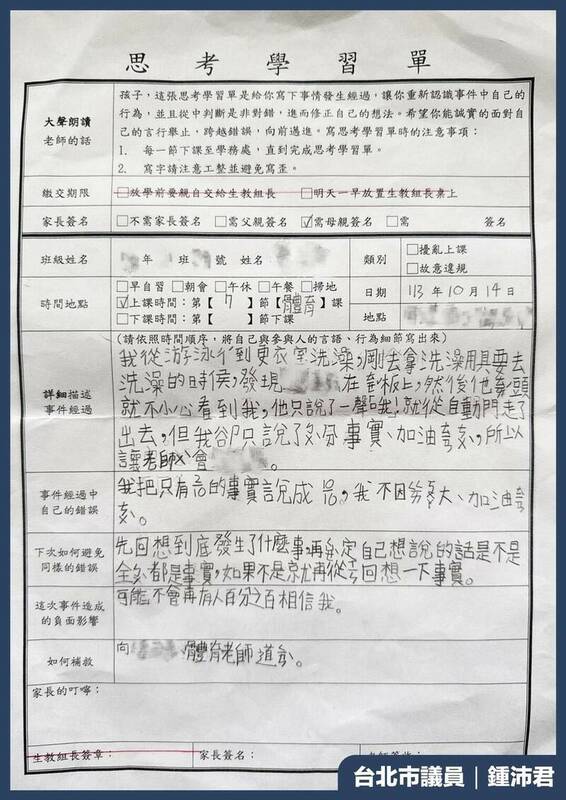 思考學習單
大聲朗讀
老師的話
孩子，這張思考學習單是給你寫下事情發生經過，讓你重新認識事件中自己的
行為，並且從中判斷是非對錯，進而修正自己的想法。希望你能誠實的面對自
己的言行舉止，跨越錯誤，向前邁進。寫思考學習單時的注意事項：
1. 每一節下課至學務處，直到完成思考學習單。
2. 寫字請注意工整並避免寫歪。
繳交期限
□放學前要親自交給生教組長 □明天一早放置生教組長桌上
家長簽名
□不需家長簽名 □需父親簽名 ☑需母親簽名 □需 簽名
班級姓名
年 班 號 姓名
類別
□擾亂上課
□故意違規
時間地點
□早自習 □朝會 □午休 □午餐 □掃地
☑上課時間：第【7】節【體育】課
□下課時間：第【 】節下課
日期
113年10月14日
地點
詳細描述
事件經過
(請依照時間順序，將自己與參與人的言語、行為細節寫出來)
我從游泳行到更衣室洗澡，剛去拿洗澡用具要去
洗澡的時候，發現 在 板上，然後他 頭
就不小心看到我，他只說了一聲 我!就從自動門走了
出去，但我 只說了 分事實、加油 ，所以
讓老師 會 。
事件經過中
自己的錯誤
我把只有 的事實說成 ，我不因 大、加油
。
下次如何避免
同樣的錯誤
先回想到底發生了什麼事，再 定自己想說的話是不是
全 都是事實，如果不是京尤再從 回想一下事實。
這次事件造成
的負面影響
可能不會再有人百分之百相信我。
如何補救
向 體育老師道 。
家長的叮嚀：
生教組長簽章：
家長簽名：
台北市議員｜鍾沛君